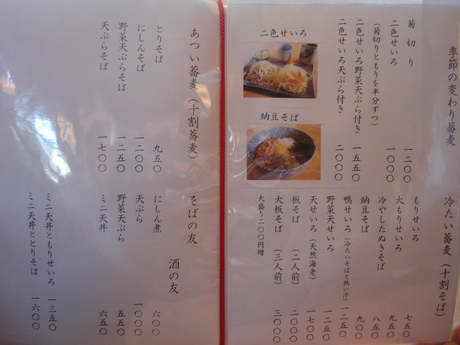 季節の変わり蕎麦
菊切り 一二〇〇
二色せいろ
(菊切りともりを半分ずつ)
二色せいろ野菜天ぷら付き 一五五〇
二色せいろ天ぷら付き 二〇〇〇
二色せいろ
納豆そば
冷たい蕎麦(十割そば)
もりせいろ 七五〇
大もりせいろ 九五〇
冷やしたぬきそば 八五〇
納豆そば 九〇〇
鴨せいろ(冷たいそばと熱い汁) 一二五〇
野菜天せいろ 一二五〇
天せいろ(天然海老) 一七〇〇
板そば(二人前) 二〇〇〇
大板そば(三人前) 三〇〇〇
大盛り二〇〇円増
あつい蕎麦(十割蕎麦)
とりそば 九五〇
にしんそば 一二〇〇
野菜天ぷらそば 一二五〇
天ぷらそば 一七〇〇
そばの友
酒の友
にしん煮 六〇〇
天ぷら 一〇〇〇
野菜天ぷら 五五〇
ミニ天丼 六五〇
ミニ天丼ともりせいろ 一三五〇
ミニ天丼ととりそば 一六〇〇